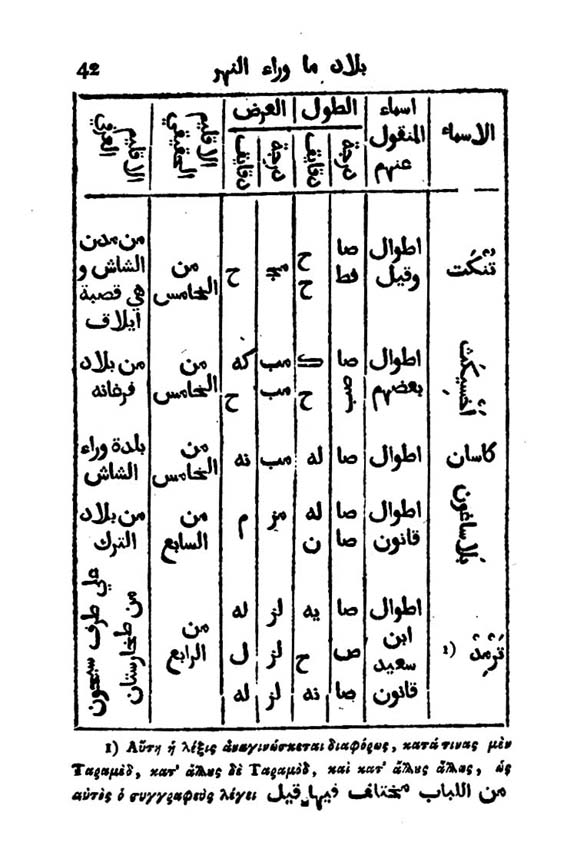 42 بلاد ما وراء النهر
الاسماء
اسماء
المنقول
عنهم
الطول
درجة
دقايق
العرض
درجة
دقايق
الاقليم
الحقيقي
الاقليم
العرفي
تُنْكَت
اطوال صا ح ح
وقيل فط ح
من
الخامس
من مدن
الشاش و
هي قصبة
ايلاف
اَخْسِيكَث
اطوال صا ك مب كه
بعضهم ح مب ح
من
الخامس
من بلاد
فرغانه
كاسان
اطوال صا له مب نه
من
الخامس
بلدة وراء
الشاش
بَلاساغون
اطوال صا له مز م
قانون صا ن
من
السابع
من بلاد
الترك
تَرْمِذ (1
اطوال صا يه لز له
ابن
سعيد ص ح لز ل
قانون صا نه لز له
من
الرابع
علي طرف سيحون
من طخارستان
1) Αὕτη ἡ λέξις ἀναγινώσκεται διαφόρως, κατά τινας μὲν
Ταραμὲδ, κατ' ἄλλυς δὲ Ταραμὸδ, καὶ κατ' ἄλλυς ἄλλως, ὡς
αὐτὸς ὁ συγγραφεὺς λέγει من اللباب مختلف فيها قيل